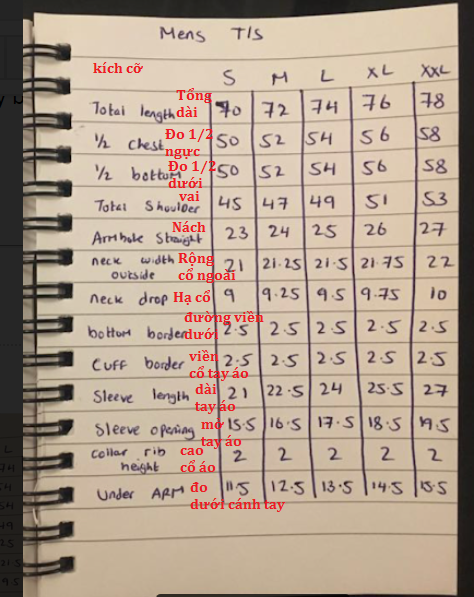 Mens T/S
kích cỡ S M L XL XXL
Total length Tổng dài 70 72 74 76 78
1/2 chest Đo 1/2 ngực 50 52 54 56 58
1/2 bottom Đo 1/2 dưới 50 52 54 56 58
Total Shoulder vai 45 47 49 51 53
Armhole Straight Nách 23 24 25 26 27
neck width outside Rộng cổ ngoài 21 21.25 21.5 21.75 22
neck drop Hạ cổ 9 9.25 9.5 9.75 10
bottom border đường viền dưới 2.5 2.5 2.5 2.5 2.5
Cuff border viền cổ tay áo 2.5 2.5 2.5 2.5 2.5
Sleeve length dài tay áo 21 22.5 24 25.5 27
Sleeve opening mở tay áo 15.5 16.5 17.5 18.5 19.5
collar rib height cao cổ áo 2 2 2 2 2
Under ARM đo dưới cánh tay 11.5 12.5 13.5 14.5 15.5